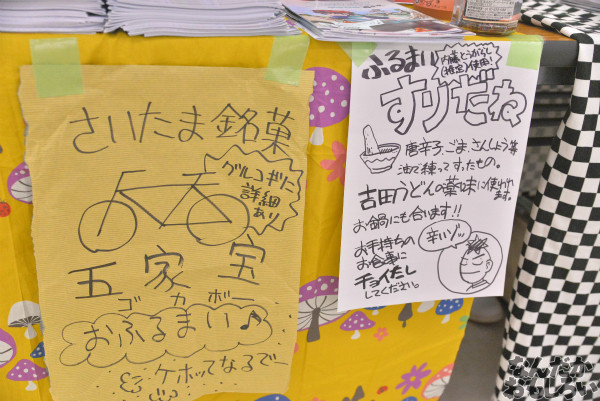 さいたま銘菓
グルコギに
詳細
あり
五家宝
ゴカボー
おふるまい♪
ケホッてなるでー
ふるまい
内藤とうがらし
使用!
すりだね
唐辛子、ごま、さんしょう等
油で練ってすったもの。
吉田うどんの薬味に使われ
ます。
お鍋にも合います!!
お手持ちの
お食事に
チョイたし
してください。
辛いゾッ
なんだか
おもしろい